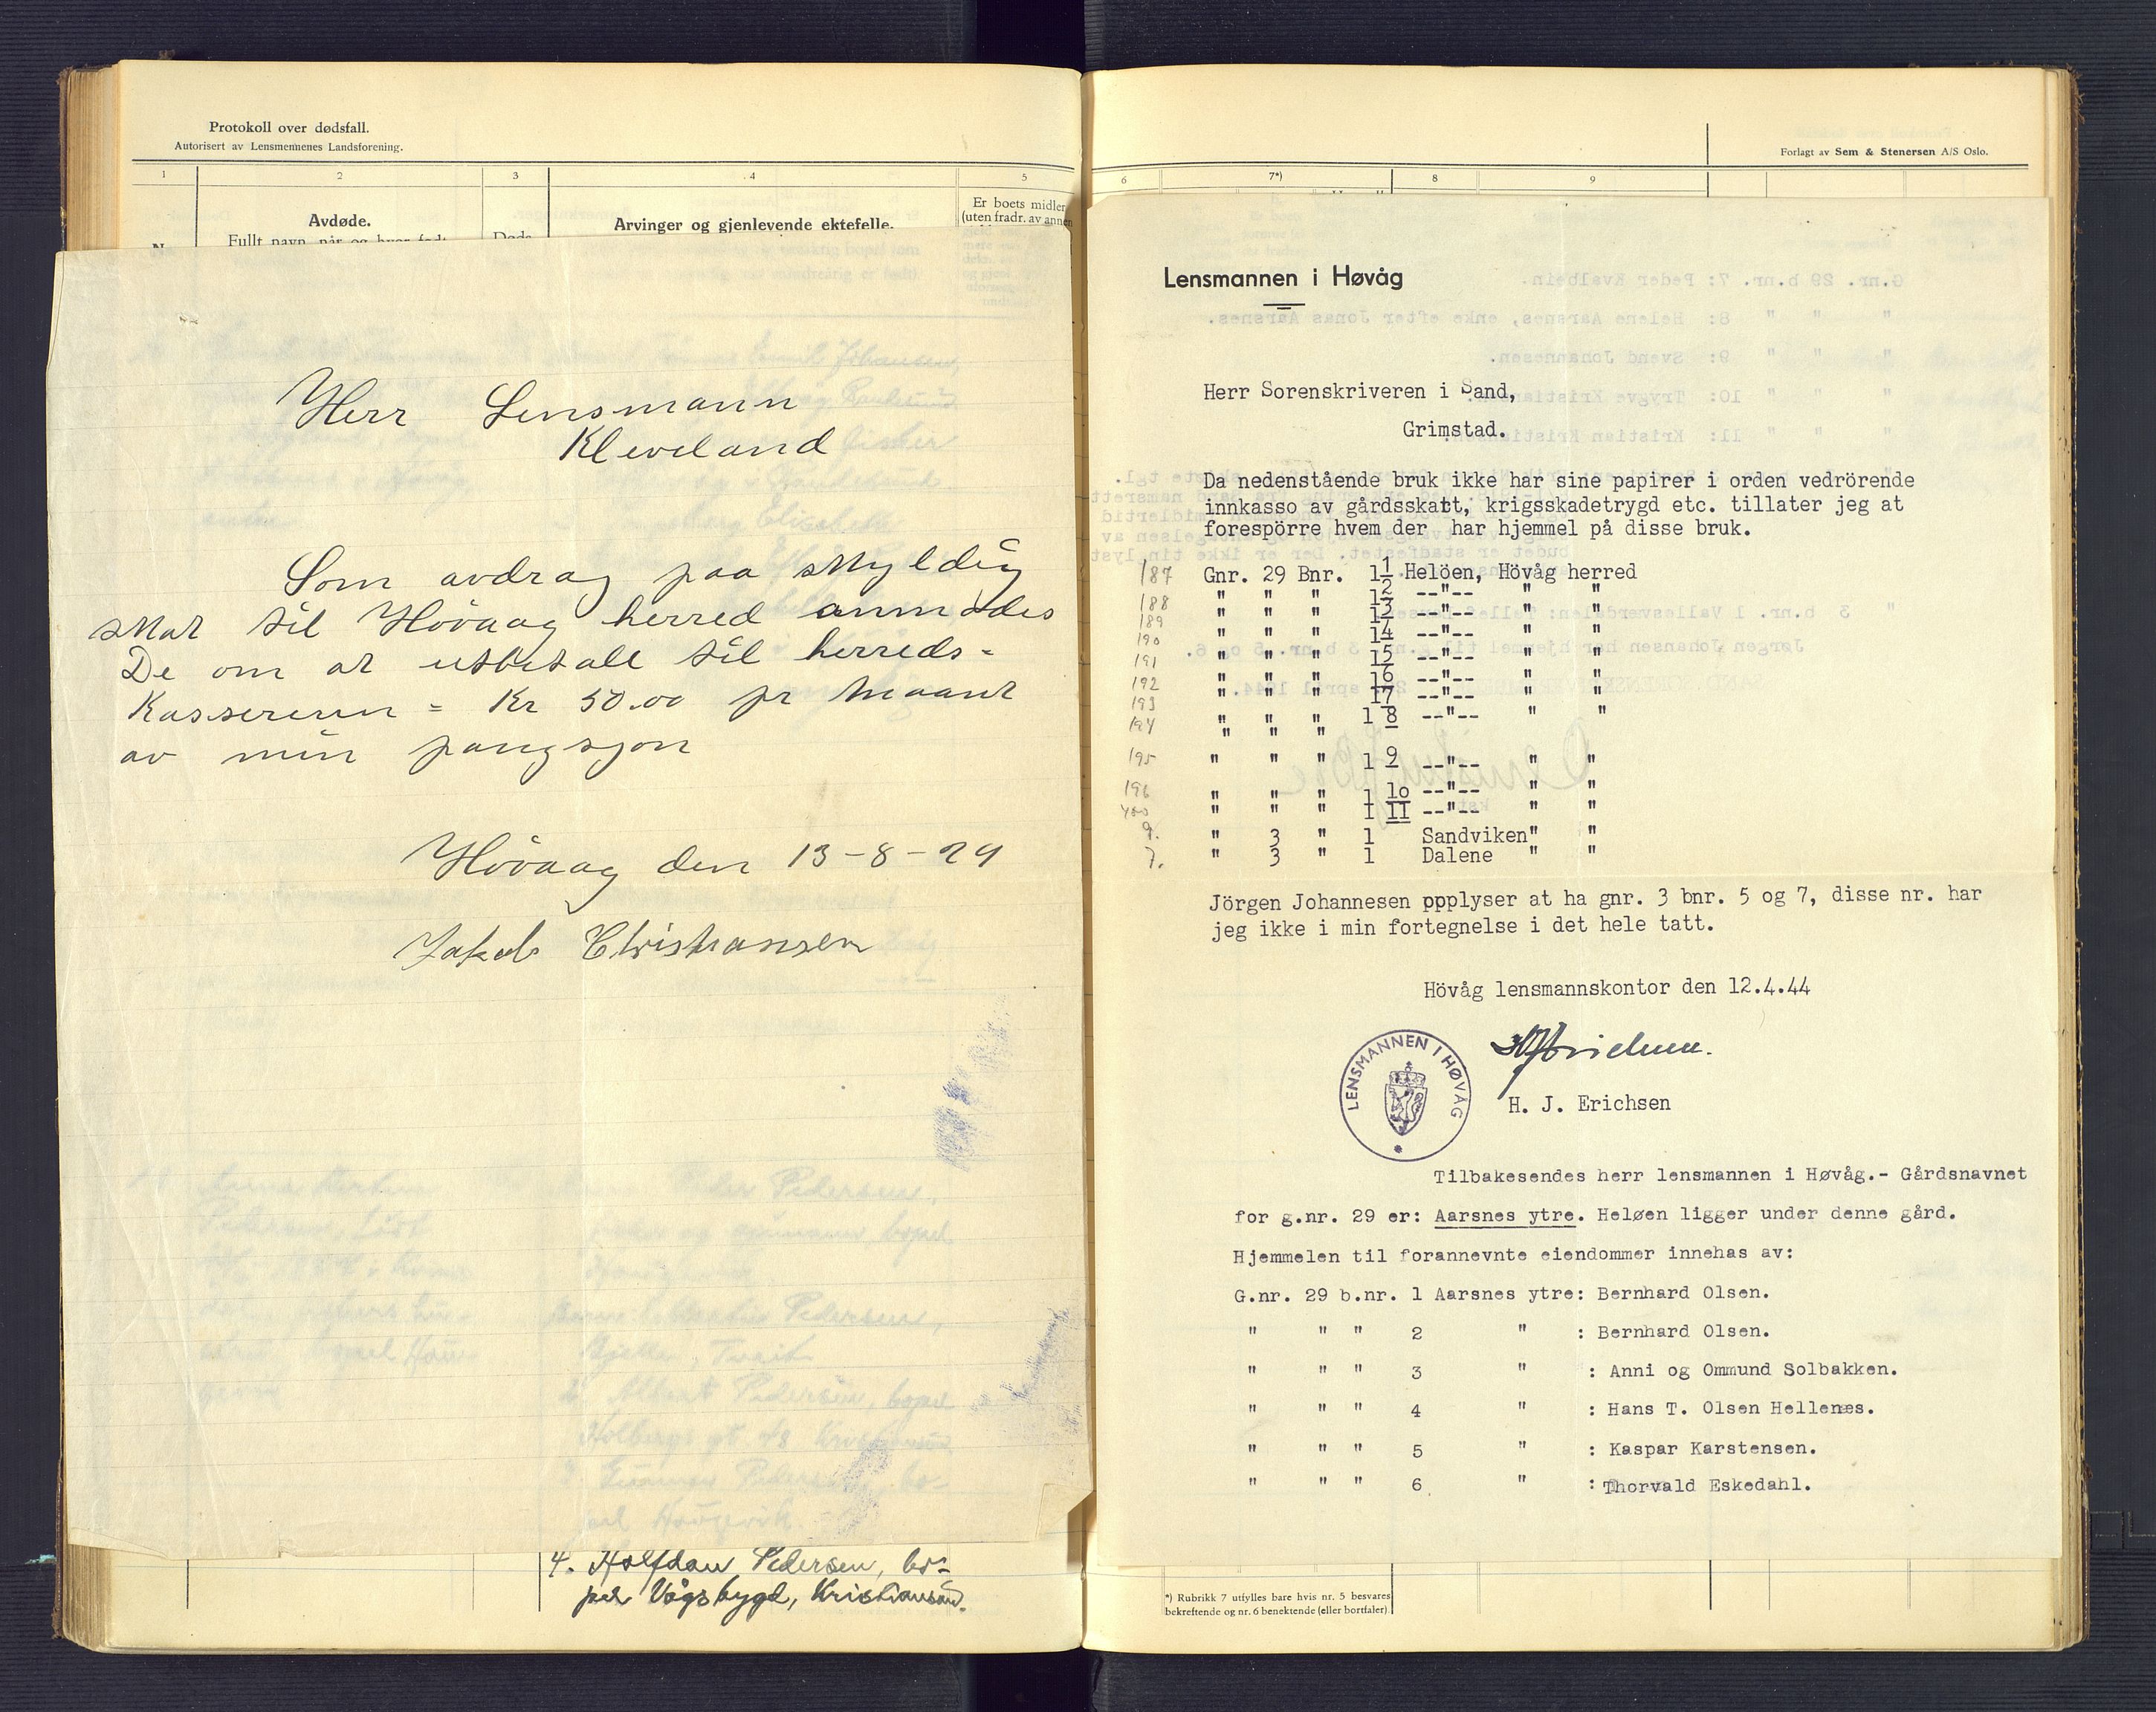 Protokoll over dødsfall.
Autorisert av Lensmennenes Landsforening.
1 2 3 4 5
Avdøde.
Arvinger og gjenlevende ektefelle.
Er boets midler
(uten fradr. av annen
Herr Lensmann
Kleveland
Som avdrag paa skyldig
skat til Høvaag herred anmodes
De om at utbetale til herreds-
Kassereren = Kr 50.00 pr Maant
av min pangsjon
Høvaag den 13-8-29
Jakob Christiansen
4. Halfdan Pedersen, bo-
pel Vågsbygd, Kristiansand.
Forlagt av Sem & Stenersen A/S Oslo.
6 7*) 8 9
Lensmannen i Høvåg
Herr Sorenskriveren i Sand,
Grimstad.
Da nedenstående bruk ikke har sine papirer i orden vedrörende
innkasso av gårdsskatt, krigsskadetrygd etc. tillater jeg at
forespörre hvem der har hjemmel på disse bruk.
187 Gnr. 29 Bnr. 1 1 Helöen, Hövåg herred
188 " " " 1 2 --"-- " "
189 " " " 1 3 --"-- " "
190 " " " 1 4 --"-- " "
191 " " " 1 5 --"-- " "
192 " " " 1 6 --"-- " "
193 " " " 1 7 --"-- " "
194 " " " 1 8 --"-- " "
" " "
195 " " " 1 9 --"-- " "
196 " " " 1 10 --"-- " "
400 " " " 1 II --"-- " "
9. " 3 " 1 Sandviken " "
7. " 3 " 1 Dalene " "
Jörgen Johannesen ppplyser at ha gnr. 3 bnr. 5 og 7, disse nr. har
jeg ikke i min fortegnelse i det hele tatt.
Hövåg lensmannskontor den 12.4.44
LENSMANNEN I HØVÅG
H. J. Erichsen
Tilbakesendes herr lensmannen i Høvåg.- Gårdsnavnet
for g.nr. 29 er: Aarsnes ytre. Heløen ligger under denne gård.
Hjemmelen til forannevnte eiendommer innehas av:
G.nr. 29 b.nr. 1 Aarsnes ytre: Bernhard Olsen.
" " " 2 " : Bernhard Olsen.
" " " 3 " : Anni og Ommund Solbakken.
" " " 4 " : Hans T. Olsen Hellenæs.
" " " 5 " : Kaspar Karstensen.
" " " 6 " : Thorvald Eskedahl.
*) Rubrikk 7 utfylles bare hvis nr. 5 besvares
bekreftende og nr. 6 benektende (eller bortfaler)